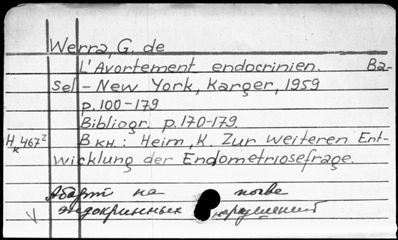 Werra, G. de
L'Avortement endocrinien. Ba-
sel - New York, Karger, 1959
p. 100-179
Bibliogr. p. 170-179.
Hк 467² Вкн.: Heim, K. Zur weiteren Ent-
wicklung der Endometriosefrage.
Аборт на почве
эндокринных нарушений
V